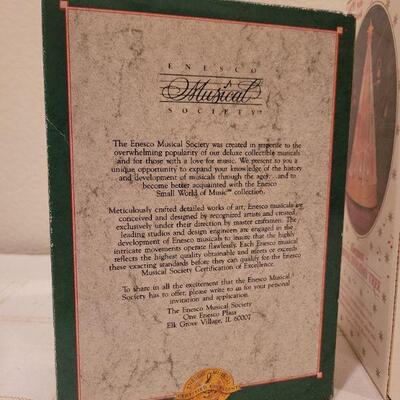 ENESCO
Musical
SOCIETY
The Enesco Musical Society was created in response to the
overwhelming popularity of our deluxe collectible musicals
and for those with a love for music. We present to you a
unique opportunity to expand your knowledge of the history
and development of musicals through the ages. . . and to
become better acquainted with the Enesco
Small World of Music™ collection.
Meticulously crafted detailed works of art, Enesco musicals are
conceived and designed by recognized artists and created
exclusively under their direction by master craftsmen. The
leading studios and design engineers are engaged in the
development of Enesco musicals to insure that the highly
intricate movements operate flawlessly. Each Enesco musical
reflects the highest quality obtainable and meets or exceeds
these exacting standards before they can qualify for the Enesco
Musical Society Certification of Excellence.
To share in all the excitement that the Enesco Musical
Society has to offer, please write to us for your personal
invitation and application.
The Enesco Musical Society
One Enesco Plaza
Elk Grove Village, IL 60007